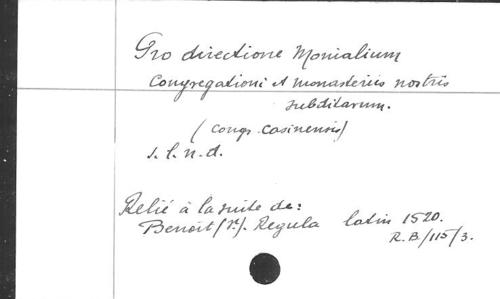 Pro directione Monialium
Congregationi et monasteriis nostris
subditarum.
(Congr. Casinensis)
s. l. n. d.
Relié à la suite de:
Benoit (St). Regula latin 1520.
R.B/115/3.